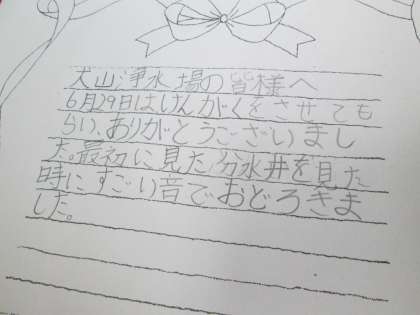 犬山浄水場の皆様へ
6月29日はけんがくをさせても
らい、ありがとうございまし
た。最初に見た分水井を見た
時にすごい音でおどろきま
した。